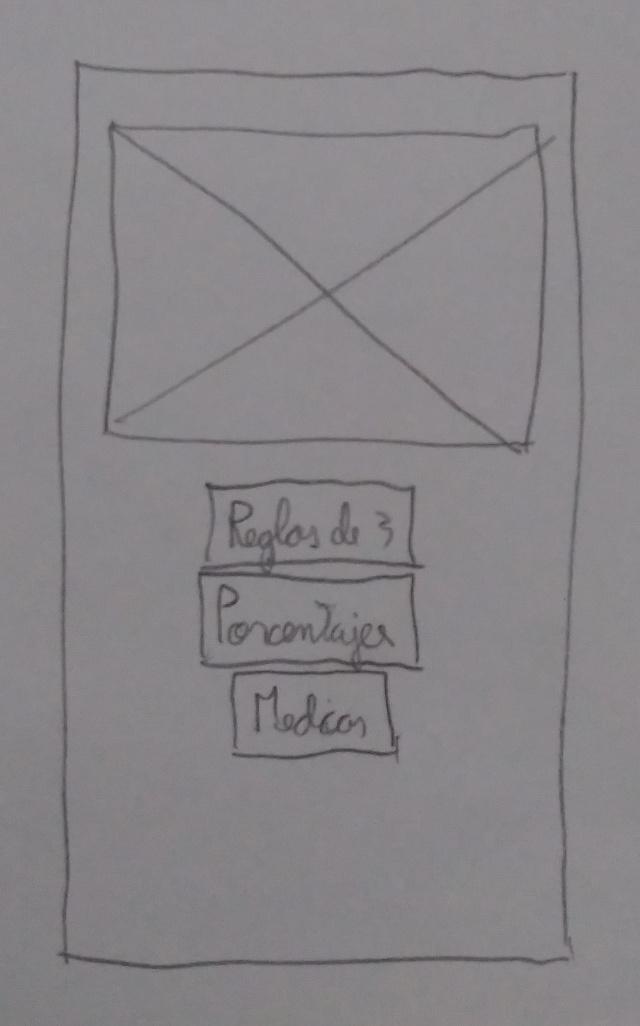 Reglas de 3
Porcentajes
Medias